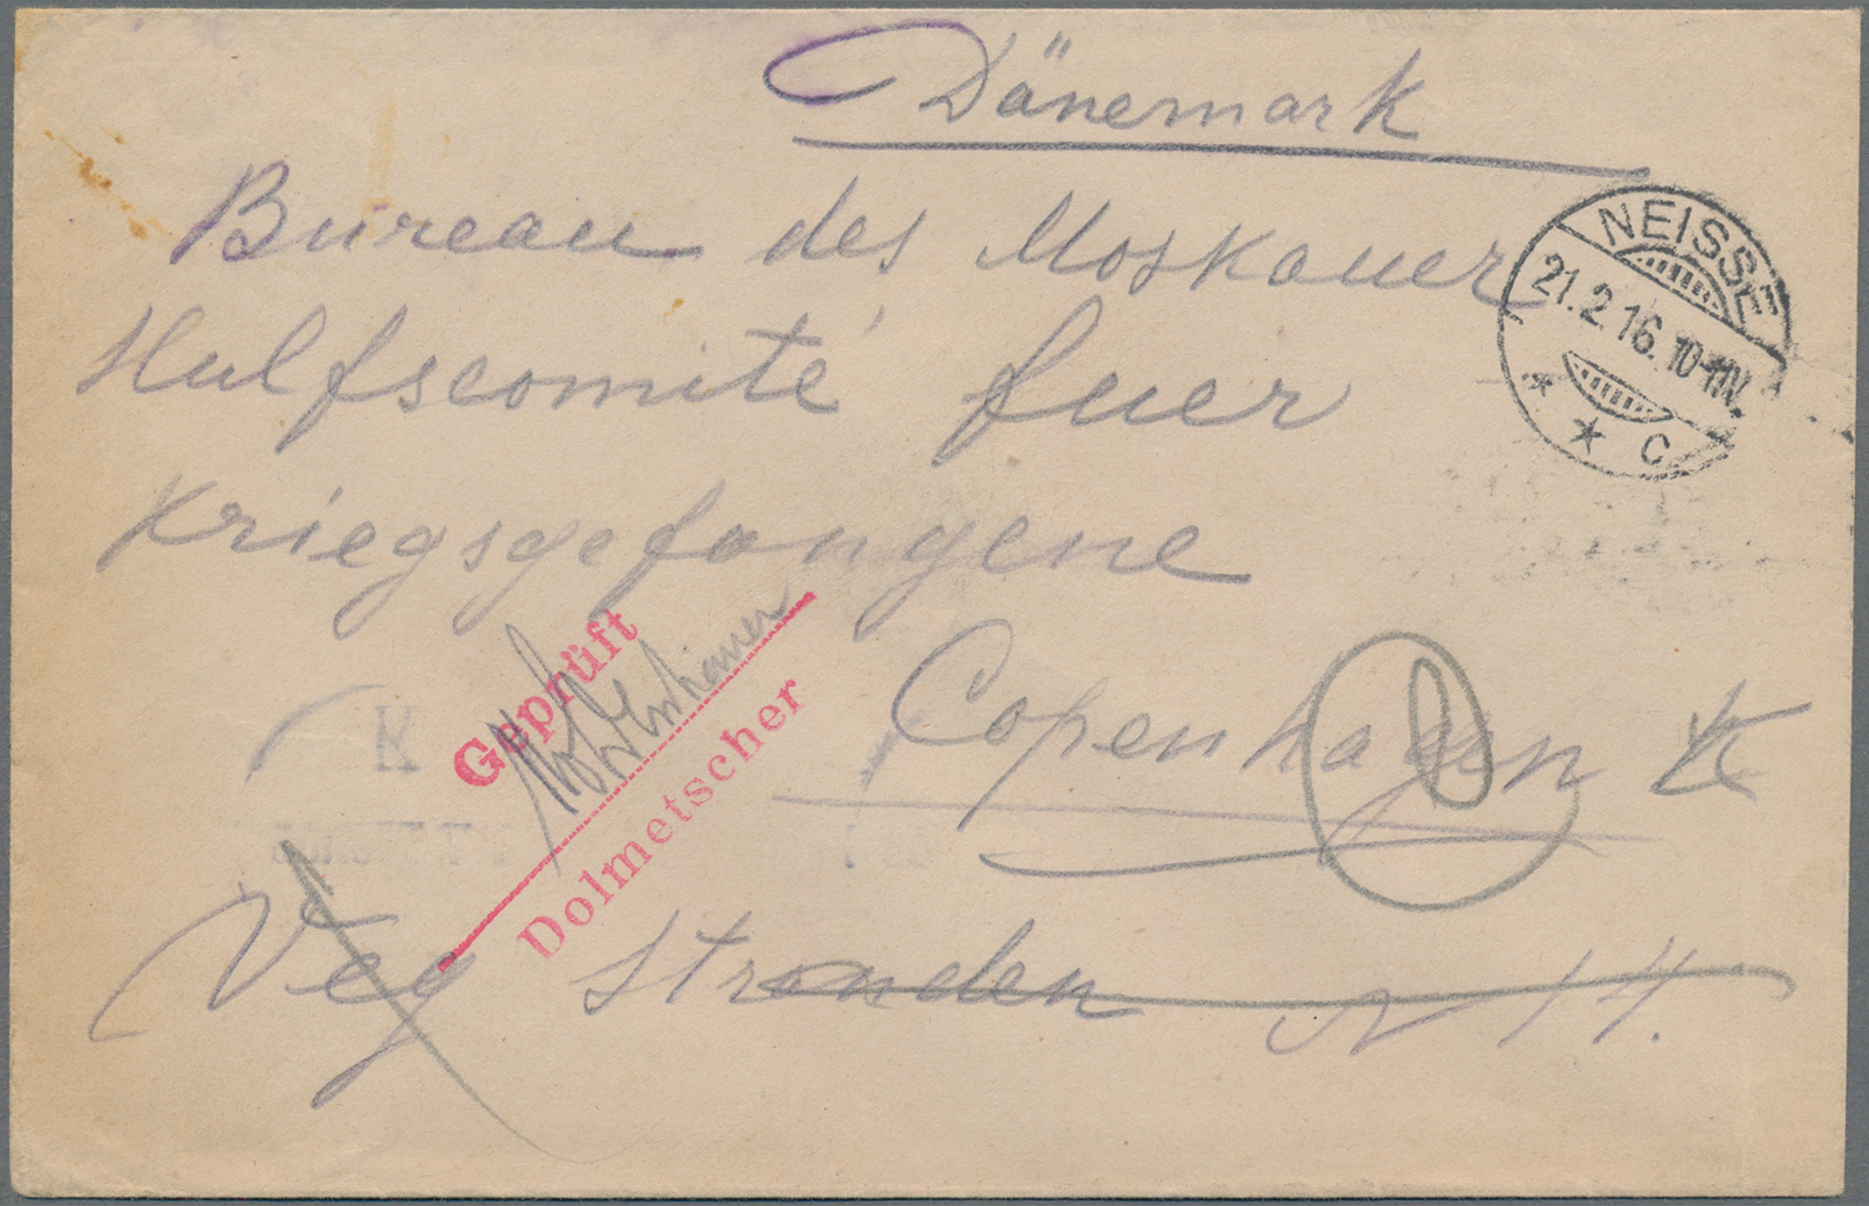 Dänemark
Bureau des Moskauer
Hulfscomité fuer
Kriegsgefangene
Copenhagen K
Veg Stranden N 14.
NEISSE
21.2.16. 10-11N.
* * C
Geprüft
Dolmetscher
K